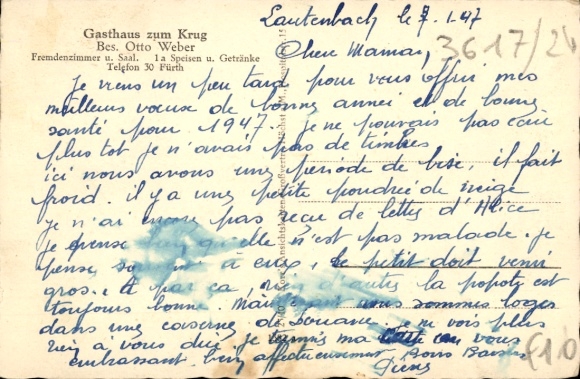 Gasthaus zum Krug
Bes. Otto Weber
Fremdenzimmer u. Saal. 1a Speisen u. Getränke
Telefon 30 Fürth
Lautenbach le 7.1.47
Chère Maman,
3617/26
Je viens un peu tard pour vous offrir mes
meilleurs voeux de bonne année et de bonne
santé pour 1947. je ne pouvais pas
plus tot je n'avais pas de timbres
ici nous avons une période de bise, il fait
froid. il y a une petite poudrée de neige
je n'ai encore pas reçu de lettre d'Alice
je pense qu'elle n'est pas malade. je
pense à eux, le petit doit venir
gros. A part ça, la popote est
toujours bonne. Maintenant nous sommes logés
dans une caserne de Douane ne vois plus
rien a vous dire je termine ma en vous
embrassant bien affectueusement Bons Baisers
€10